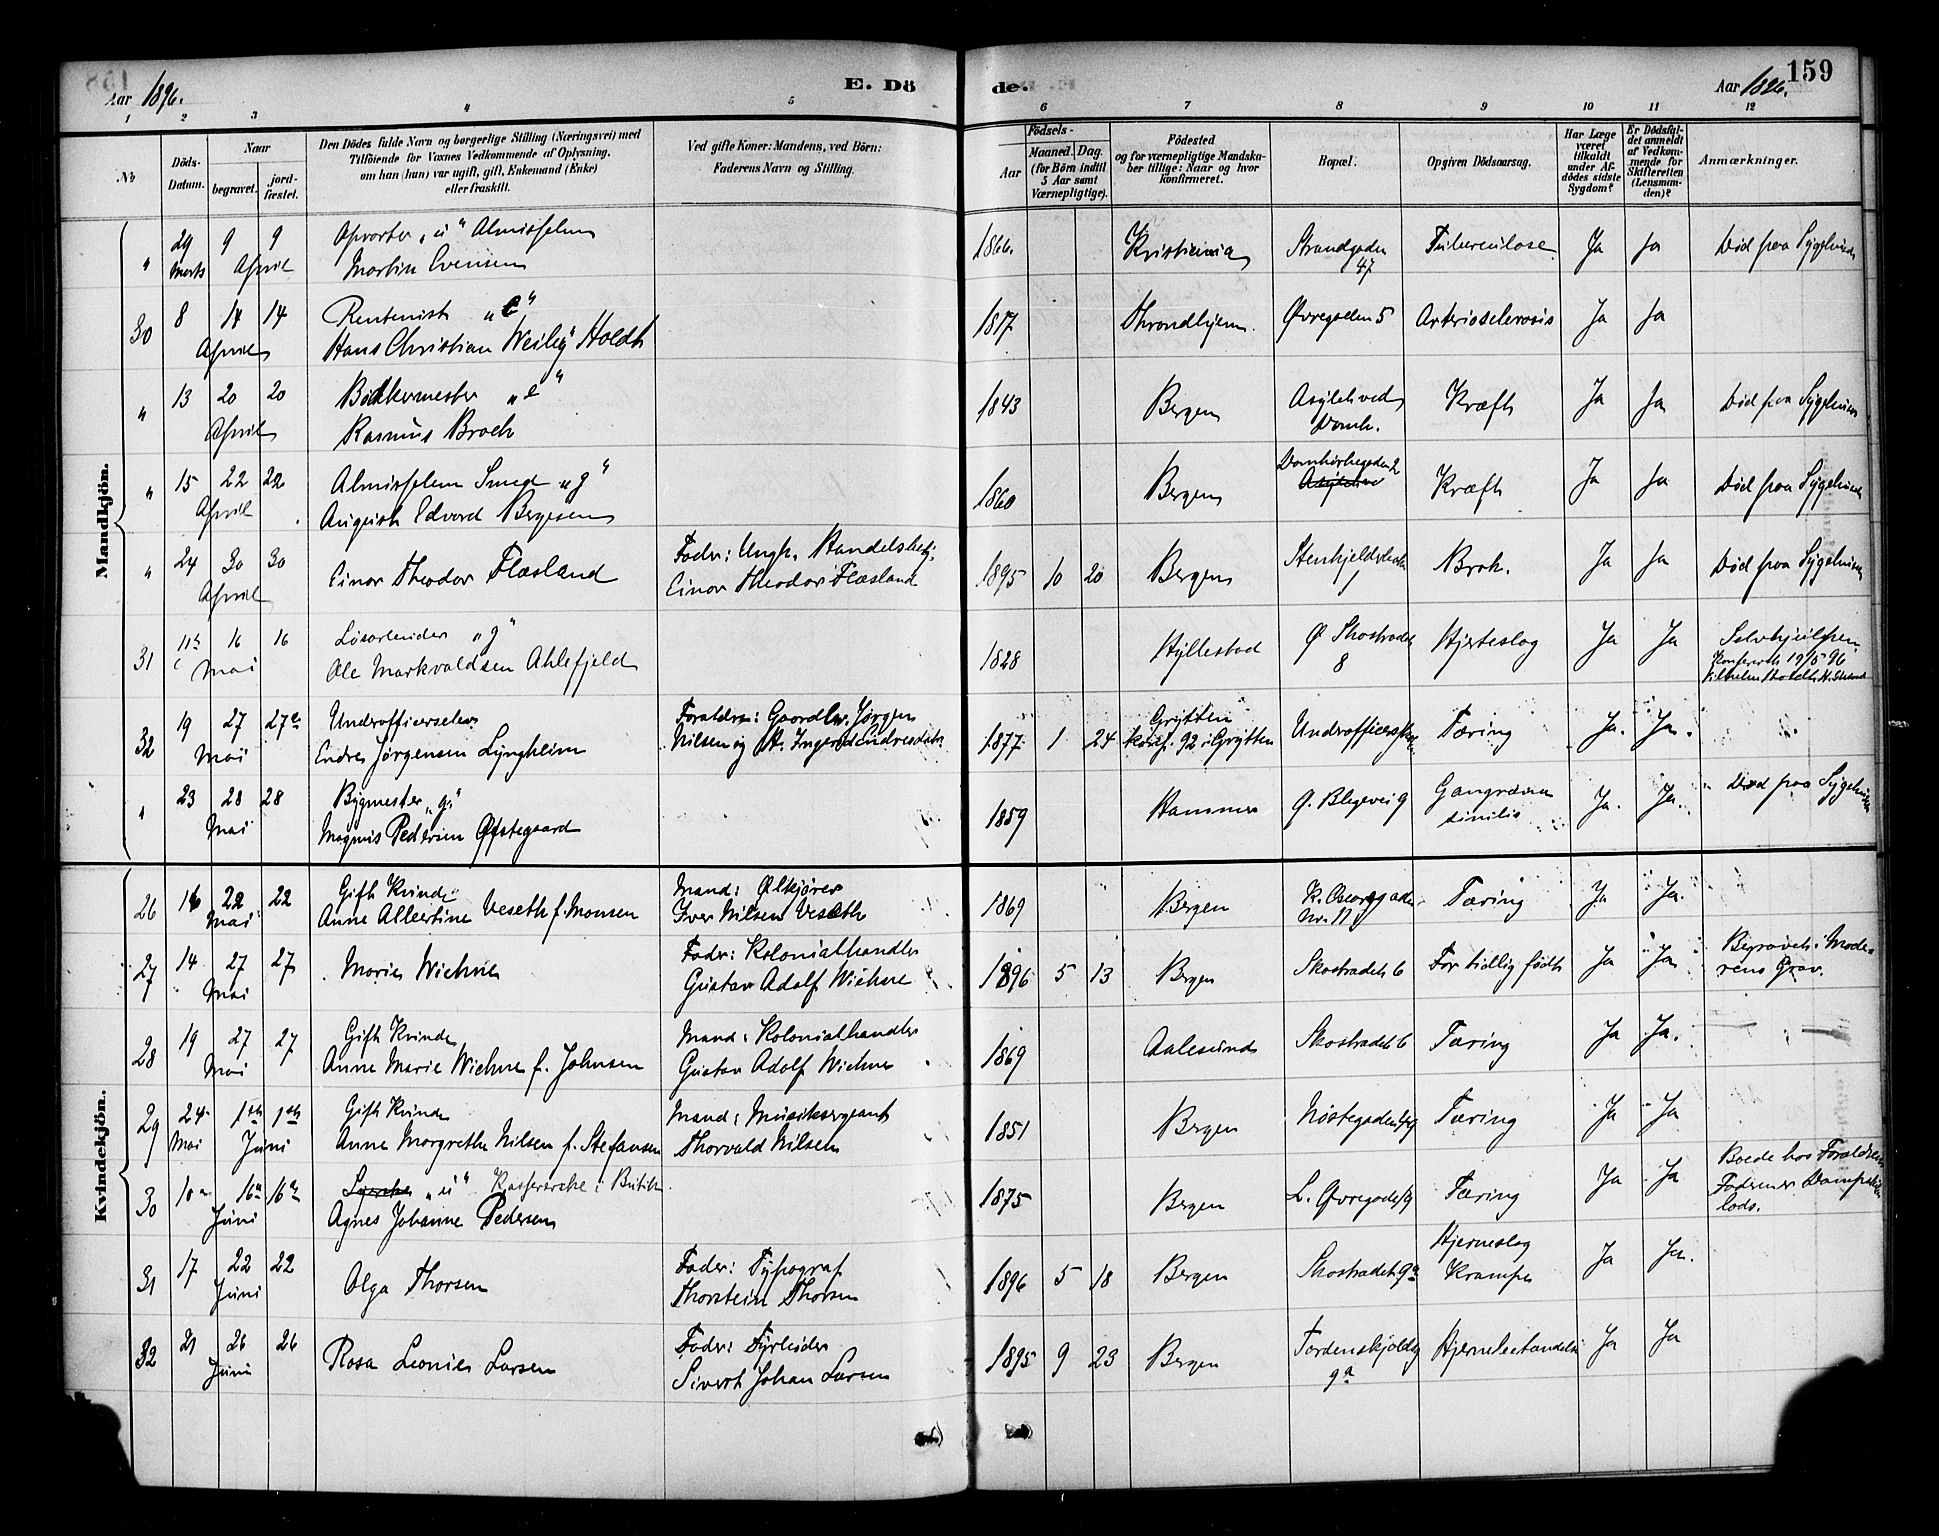 158
Aar 1896.
E. Dö
de.
Aar 1896.
159
1 2 3 4 5 6 7 8 9 10 11 12
No
Döds-Datum.
Naar
begravet.
jordfæstet.
Den Dödes fulde Navn og borgerlige Stilling (Næringsvei) med
Tilföiende for Voxnes Vedkommende af Oplysning,
om han (hun) var ugift, gift, Enkemand (Enke)
eller fraskilt.
Ved gifte Koner: Mandens, ved Börn:
Faderens Navn og Stilling.
Födsels-
Aar
Maaned. Dag.
(for Börn indtil
5 Aar samt
Værnepligtige).
Födested
og for værnepligtige Mandskaber
tillige: Naar og hvor
konfirmeret.
Bopæl.
Opgiven Dödsaarsag.
Har Læge
været
tilkaldt
under Afdödes
sidste
Sygdom?
Er Dödsfaldet
anmeldt
af Vedkommende
for
Skifteretten
(Lensmanden)?
Anmærkninger.
Mandkjön.
" 29 Marts 9 9 April Opvarter "u" Almisselem
Martin Evensen 1866. Kristiania Strandgaden 47 Tuberculose Ja Ja Død paa Sygehuset
30 8 14 14 April Rentenist "e"
Hans Christian Weiby Holdt 1817 Throndhjem Øvregaden 5 Arteriosclerosis Ja Ja
" 13 20 20 April Bødkermester "e"
Rasmus Broch 1843 Bergen Asylet ved Domk. Kræft Ja Ja Død paa Sygehuset
" 15 22 22 April Almisselem Smed "g"
August Edvard Bergesen 1860 Bergen Domkirkegaden 2 Kræft Ja Ja Død paa Sygehuset
" 24 30 30 April Einar Theodor Flæsland Fader: Ungk. Handelsbetj.
Einar Theodor Flæsland 1895 10 20 Bergen 1 Brok. Ja Ja Død paa Sygehuset
31 11te 16 16 Mai Løsarbeider "g"
Ole Markvaldsen Ahlefjeld 1828 Hyllestad Ø Skostrædet 8 Hjerteslag Ja Ja
19/5 96
32 19 27 27 Mai Underofficerselev
Endre Jørgensen Lyngheim Forældre: Gaardbr. Jørgen
Nilsen og H. Ingerid Endresdatter 1877 1 24 Grytten
konf. 92 i Grytten Tæring Ja. Ja.
" 23 28 28 Mai Bygmester "g"
Magnus Pedersen Øfstegaard 1859 Hammer G. Blegevei 9 Gangræna
sinilis Ja. Ja. Død paa Sygehuset
Kvindekjön.
26 16 22 22 Mai Gift Kvinde
Anne Albertine Veseth f. Monsen Mand: Ølkjører
Iver Nilsen Veseth 1869 Bergen K. Georggaden
Nr. 11 Tæring Ja Ja.
27 14 27 27 Mai Marie Wiehne Fader: Kolonialhandler
Gustav Adolf Wiehne 1896 5 13 Bergen Skostrædet 6 For tidlig født Ja Ja Begravet i Moderens
Grav.
28 19 27 27 Mai Gift Kvinde
Anne Marie Wiehne f. Johnsen Mand: Kolonialhandler
Gustav Adolf Wiehne 1869 Aalesund Skostrædet 6 Tæring Ja Ja.
29 24 Mai 1ste 1ste Juni Gift Kvinde
Anne Margrethe Nilsen f. Stefansen Mand: Musiksergeant
Thorvald Nilsen 1851 Bergen Nøstegaden Tæring Ja Ja
30 10 16 16 Juni "u" Kassererske i Butik
Agnes Johanne Pedersen 1875 Bergen L. Øvregade 9 Tæring Ja Ja Boede hos Forældrene
Faderen er
lods.
31 17 22 22 Juni Olga Thorsen Fader: Typograf
Thorstein Thorsen 1896 5 18 Bergen Skostrædet 9a Hjerneslag
Krampe Ja Ja.
32 21 26 26 Juni Rosa Leonie Larsen Fader: Fyrbøder
Sivert Johan Larsen 1895 9 23 Bergen Tordenskjoldsg
9a Hjernebetændelse Ja Ja